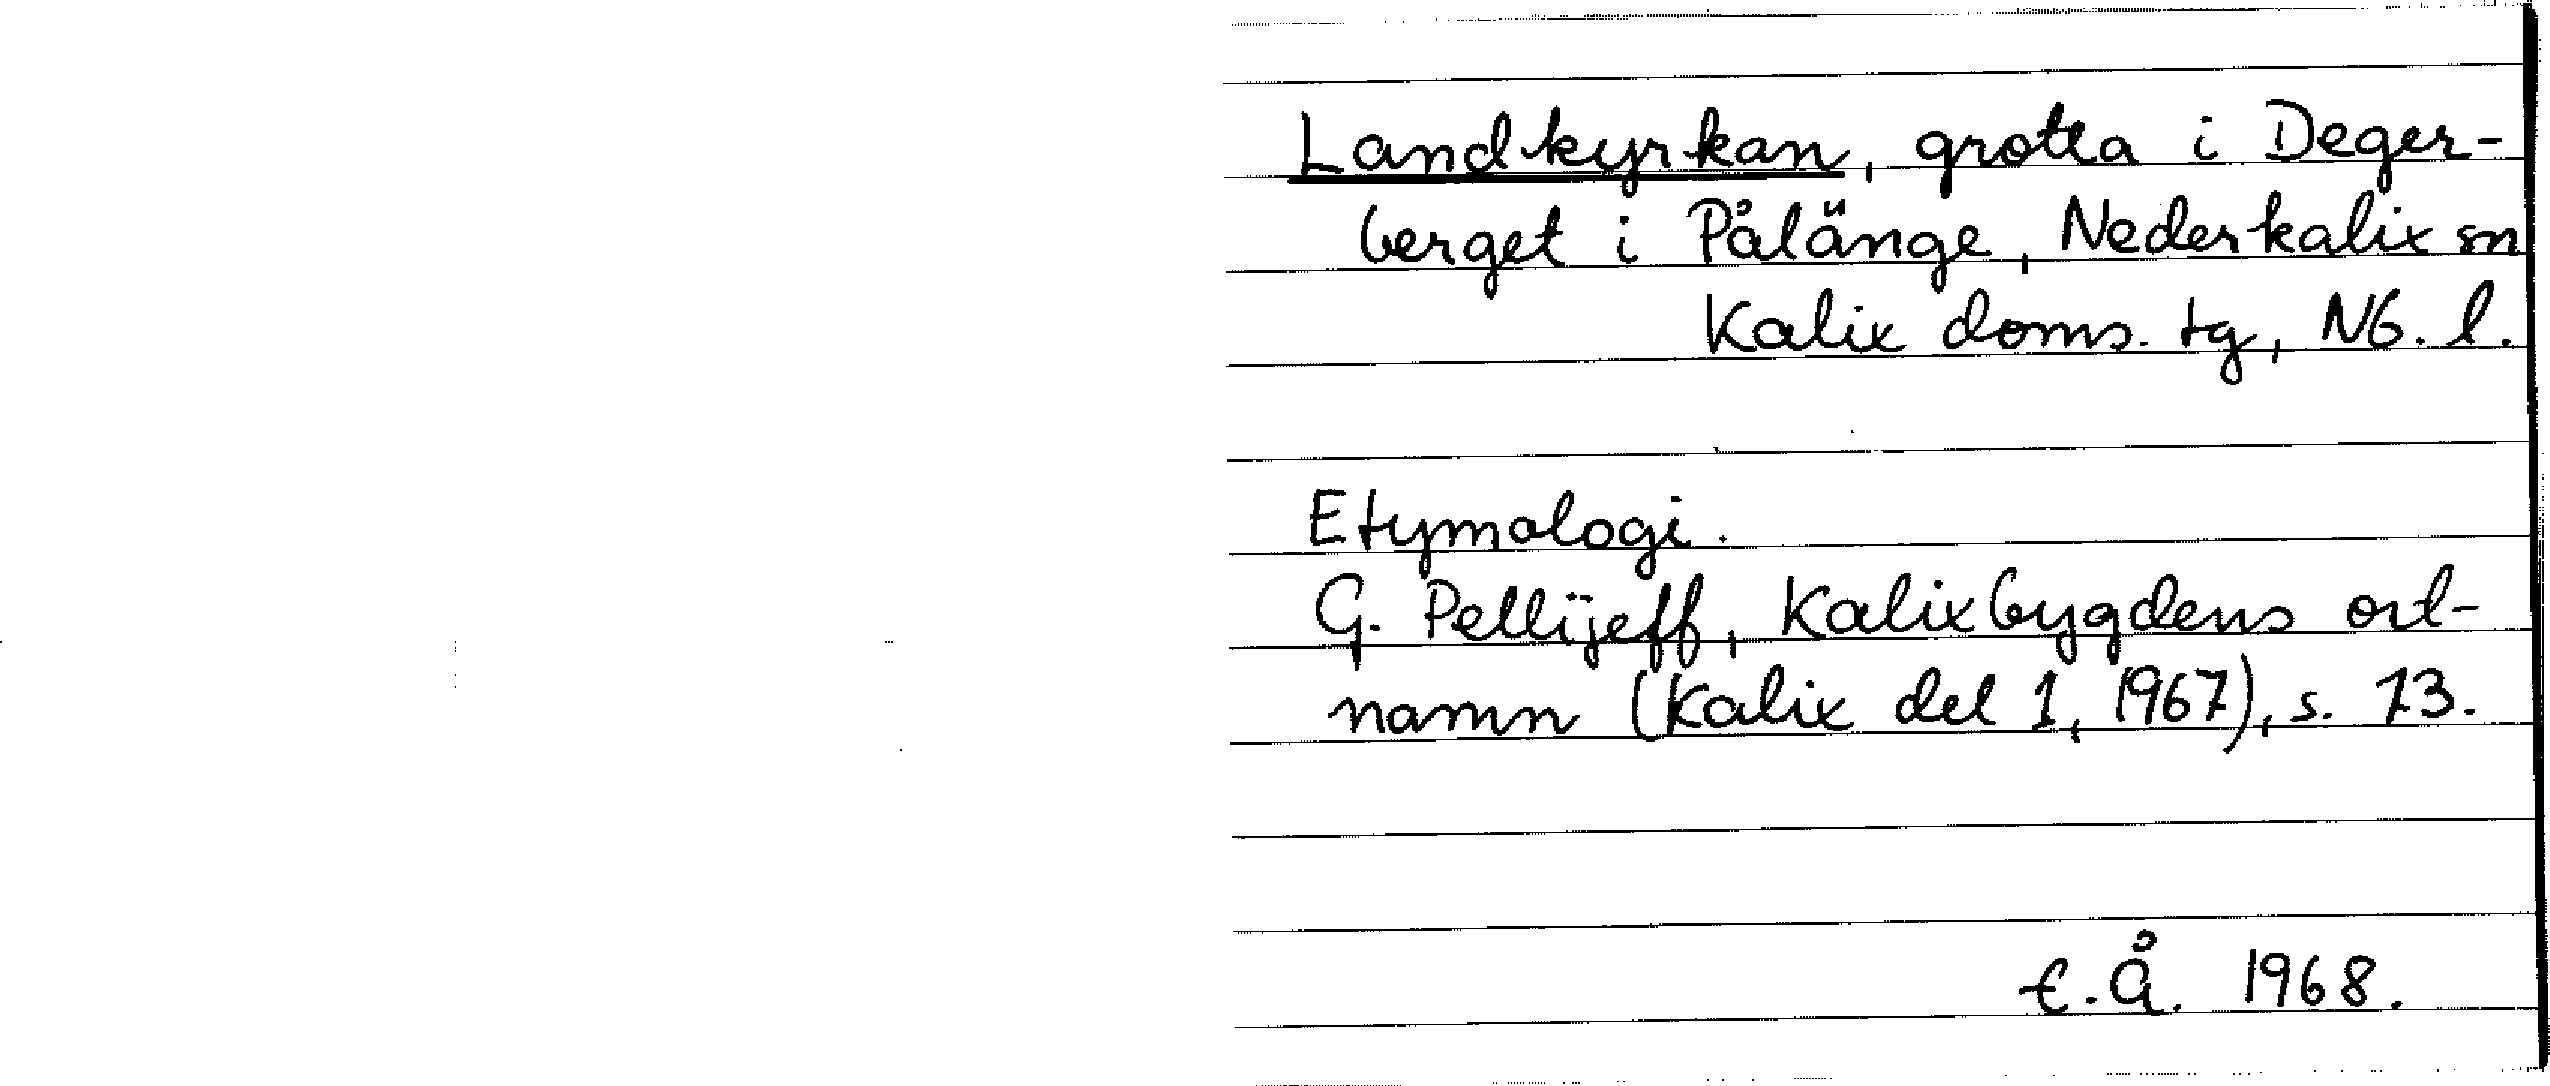 Landkyrkan, grotta i Deger-
berget i Pålänge, Nederkalix sn
Kalix doms. tg, Nb. l.
Etymologi.
G. Pellijeff, Kalixbygdens ort-
namn (Kalix del 1, 1967), s. 73.
E.Å. 1968.